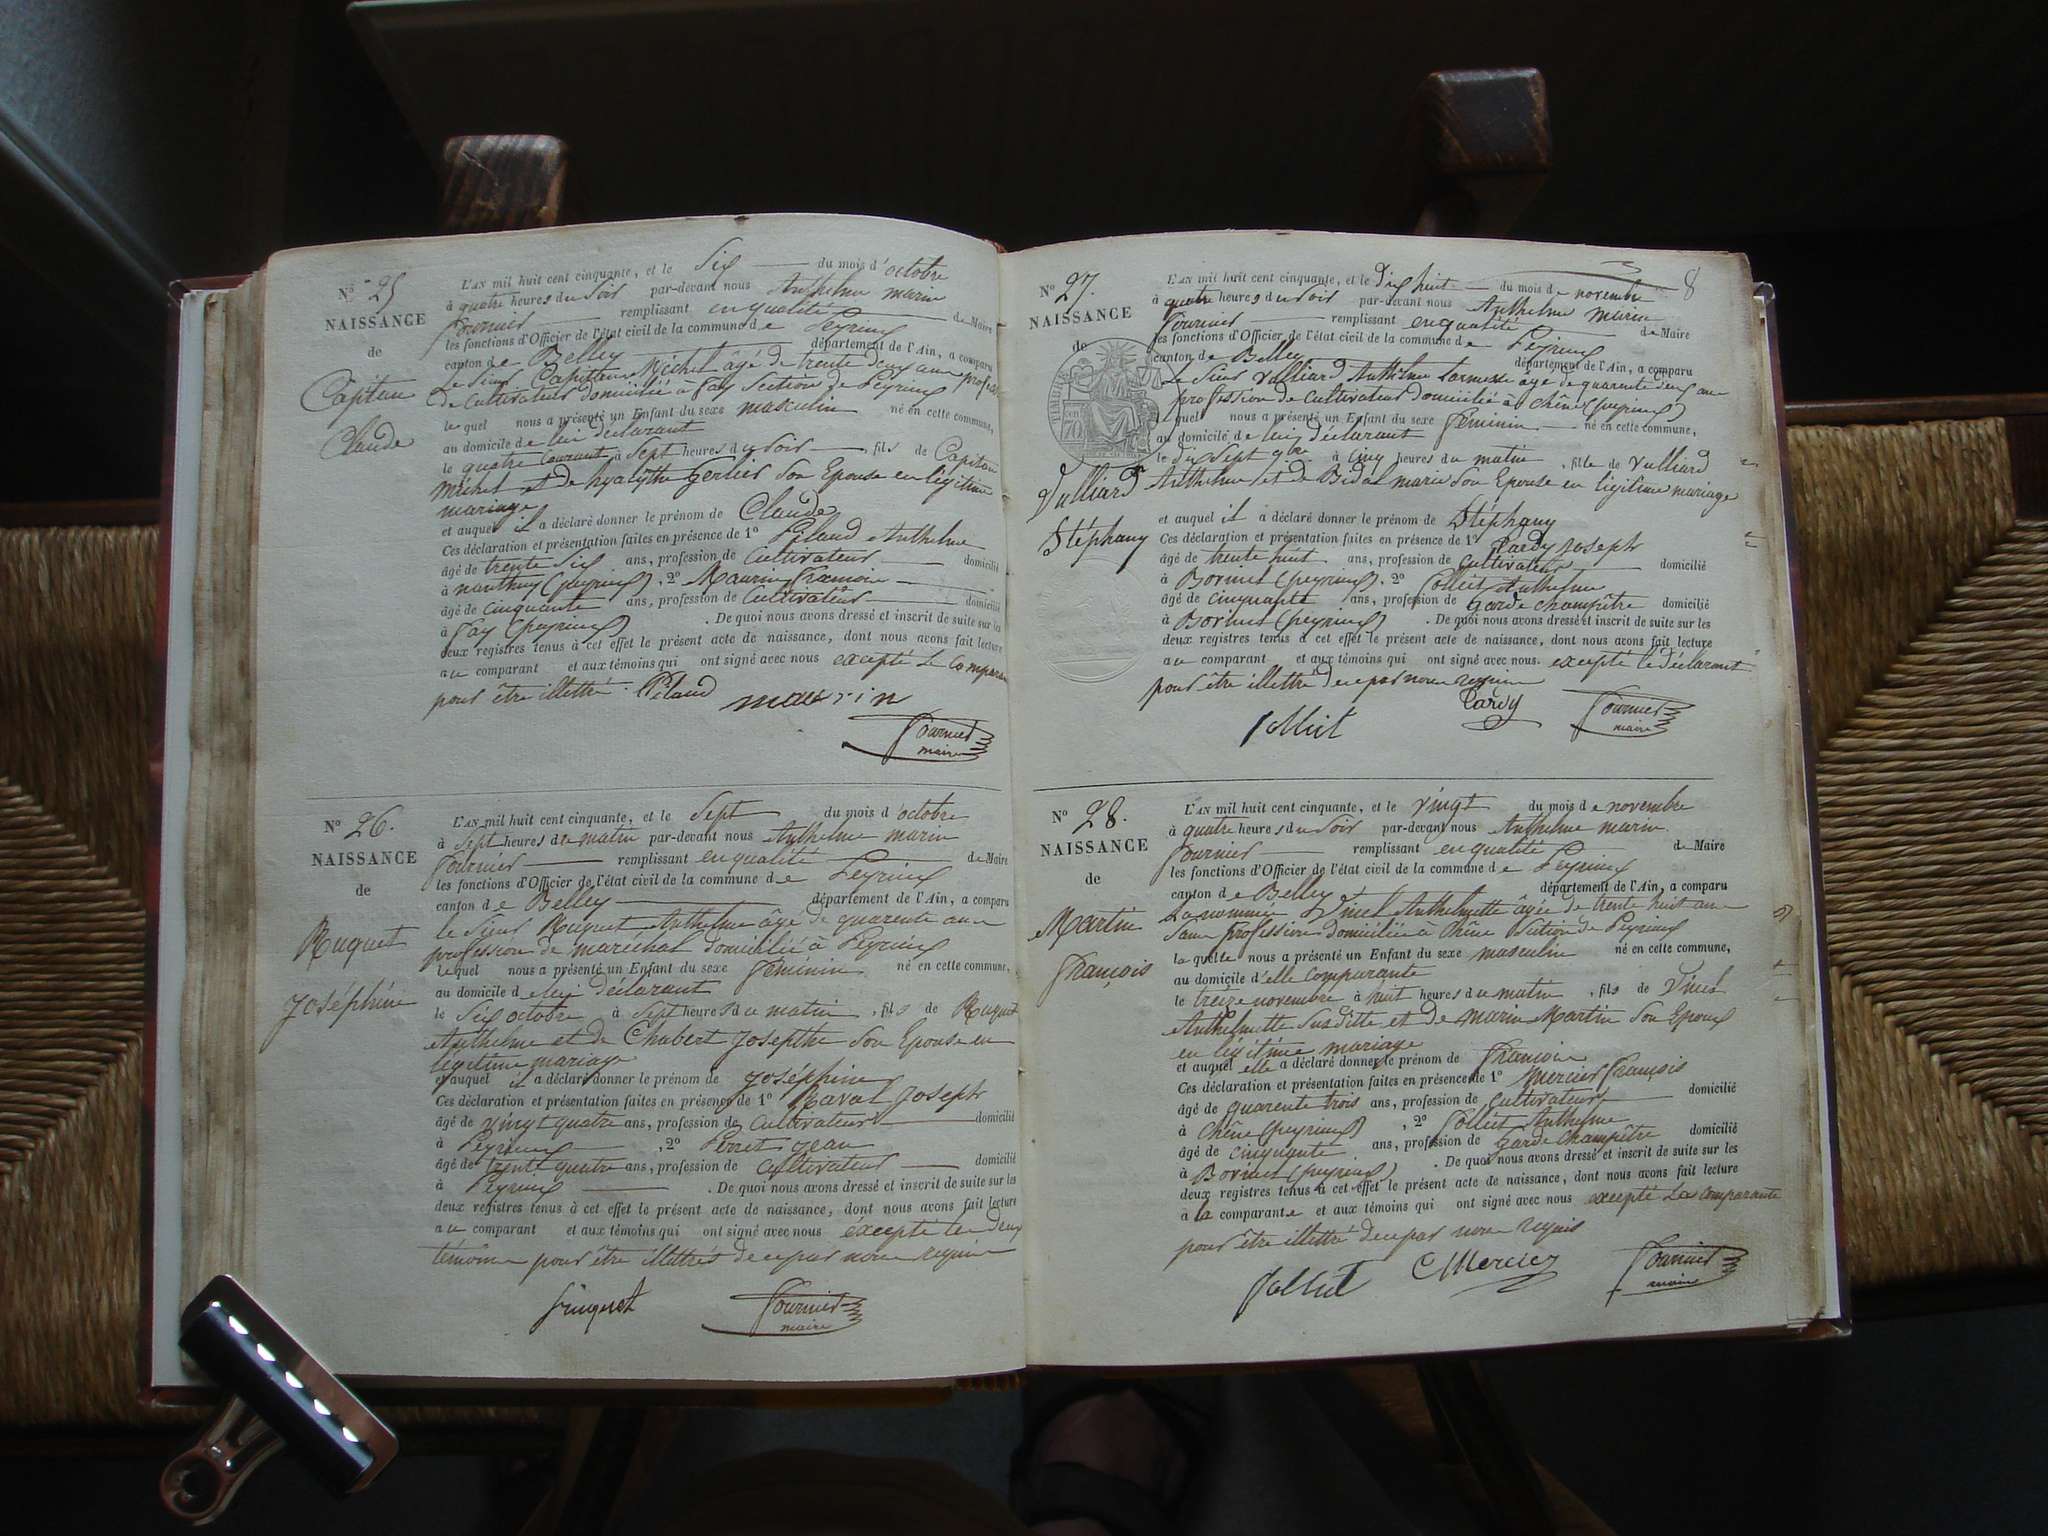 Nº 25
NAISSANCE
de
Capitan
Claude
L'AN mil huit cent cinquante, et le Six du mois d'octobre
à quatre heures du Soir par-devant nous Anthelme marin
Fournier remplissant en qualité de Maire
les fonctions d'Officier de l'état civil de la commune de Peyrieux
canton de Belley département de l'Ain, a comparu
Le Sieur Capitan Michel âgé de trente deux ans profession
de Cultivateur domicilié à Fay Section de Peyrieux
lequel nous a présenté un Enfant du sexe masculin né en cette commune,
au domicile de lui déclarant
le quatre Courant à Sept heures du Soir, fils de Capitan
Michel et de hyacinthe Gerlier Son Epouse en légitime
mariage
et auquel il a déclaré donner le prénom de Claude
Ces déclaration et présentation faites en présence de 1º Pélaud Anthelme
âgé de trente Six ans, profession de Cultivateur domicilié
à nanthuy (peyrieux), 2º Maurin francois
âgé de cinquante ans, profession de Cultivateur domicilié
à Fay (peyrieux). De quoi nous avons dressé et inscrit de suite sur les
deux registres tenus à cet effet le présent acte de naissance, dont nous avons fait lecture
au comparant et aux témoins qui ont signé avec nous excepté Le Comparant
pour être illettré. Pélaud maurin
Fournier
maire
Nº 26.
NAISSANCE
de
Ruguet
Joséphine
L'AN mil huit cent cinquante, et le Sept du mois d'octobre
à Sept heures du matin par-devant nous Anthelme marin
Fournier remplissant en qualité de Maire
les fonctions d'Officier de l'état civil de la commune de Peyrieux
canton de Belley département de l'Ain, a comparu
le Sieur Ruguet Anthelme âgé de quarente ans
profession de maréchal domicilié à Peyrieux
lequel nous a présenté un Enfant du sexe féminin né en cette commune,
au domicile de lui déclarant
le Six octobre à Sept heures du matin, fils de Ruguet
Anthelme et de Chabert Josepthe Son Epouse en
légitime mariage
et auquel il a déclaré donner le prénom de Joséphine
Ces déclaration et présentation faites en présence de 1º Ravat Joseph
âgé de vingt quatre ans, profession de Cultivateur domicilié
à Peyrieux, 2º Perret Jean
âgé de trente quatre ans, profession de cultivateur domicilié
à Peyrieux. De quoi nous avons dressé et inscrit de suite sur les
deux registres tenus à cet effet le présent acte de naissance, dont nous avons fait lecture
au comparant et aux témoins qui ont signé avec nous excepté les deux
témoins pour être illettrés de ce par nous requis
Fournier
maire
8
Nº 27.
NAISSANCE
de
TIMBRE
70
Vulliard
Stéphany
L'AN mil huit cent cinquante, et le Dix huit du mois de novembre
à quatre heures du Soir par-devant nous Anthelme marin
Fournier remplissant en qualité de Maire
les fonctions d'Officier de l'état civil de la commune de Peyrieux
canton de Belley département de l'Ain, a comparu
Le Sieur Vulliard Anthelme âgé de quarente deux ans
profession de Cultivateur domicilié à Chêne (peyrieux)
lequel nous a présenté un Enfant du sexe féminin né en cette commune,
au domicile de lui déclarant
le dix Sept 9bre à cinq heures du matin, fille de Vulliard
Anthelme et de Bidal marie Son Epouse en légitime mariage
et auquel il a déclaré donner le prénom de Stéphany
Ces déclaration et présentation faites en présence de 1º Pardy Joseph
âgé de trente huit ans, profession de cultivateur domicilié
à Borinet (peyrieux), 2º Colliet Anthelme
âgé de cinquante ans, profession de garde champêtre domicilié
à Borinet (peyrieux). De quoi nous avons dressé et inscrit de suite sur les
deux registres tenus à cet effet le présent acte de naissance, dont nous avons fait lecture
au comparant et aux témoins qui ont signé avec nous excepté le déclarant
pour être illettré de ce par nous requis
Pardy
Colliet
Fournier
maire
Nº 28.
NAISSANCE
de
Martin
François
L'AN mil huit cent cinquante, et le vingt du mois de novembre
à quatre heures du Soir par-devant nous Anthelme marin
Fournier remplissant en qualité de Maire
les fonctions d'Officier de l'état civil de la commune de Peyrieux
canton de Belley département de l'Ain, a comparu
La nommée Vinel Anthelmette âgée de trente huit ans
Sans profession domiciliée à Chêne Section de Peyrieux
laquelle nous a présenté un Enfant du sexe masculin né en cette commune,
au domicile d'elle comparante
le treize novembre à huit heures du matin, fils de Vinel
Anthelmette Susditte et de marin Martin Son Epoux
en légitime mariage
et auquel elle a déclaré donner le prénom de François
Ces déclaration et présentation faites en présence de 1º Mercier François
âgé de quarente trois ans, profession de cultivateur domicilié
à Chêne (peyrieux), 2º Colliet Anthelme
âgé de cinquante ans, profession de garde champêtre domicilié
à Borinet (peyrieux). De quoi nous avons dressé et inscrit de suite sur les
deux registres tenus à cet effet le présent acte de naissance, dont nous avons fait lecture
à la comparante et aux témoins qui ont signé avec nous excepté La comparante
pour être illettré de ce par nous requis
Colliet
Mercier
Fournier
maire